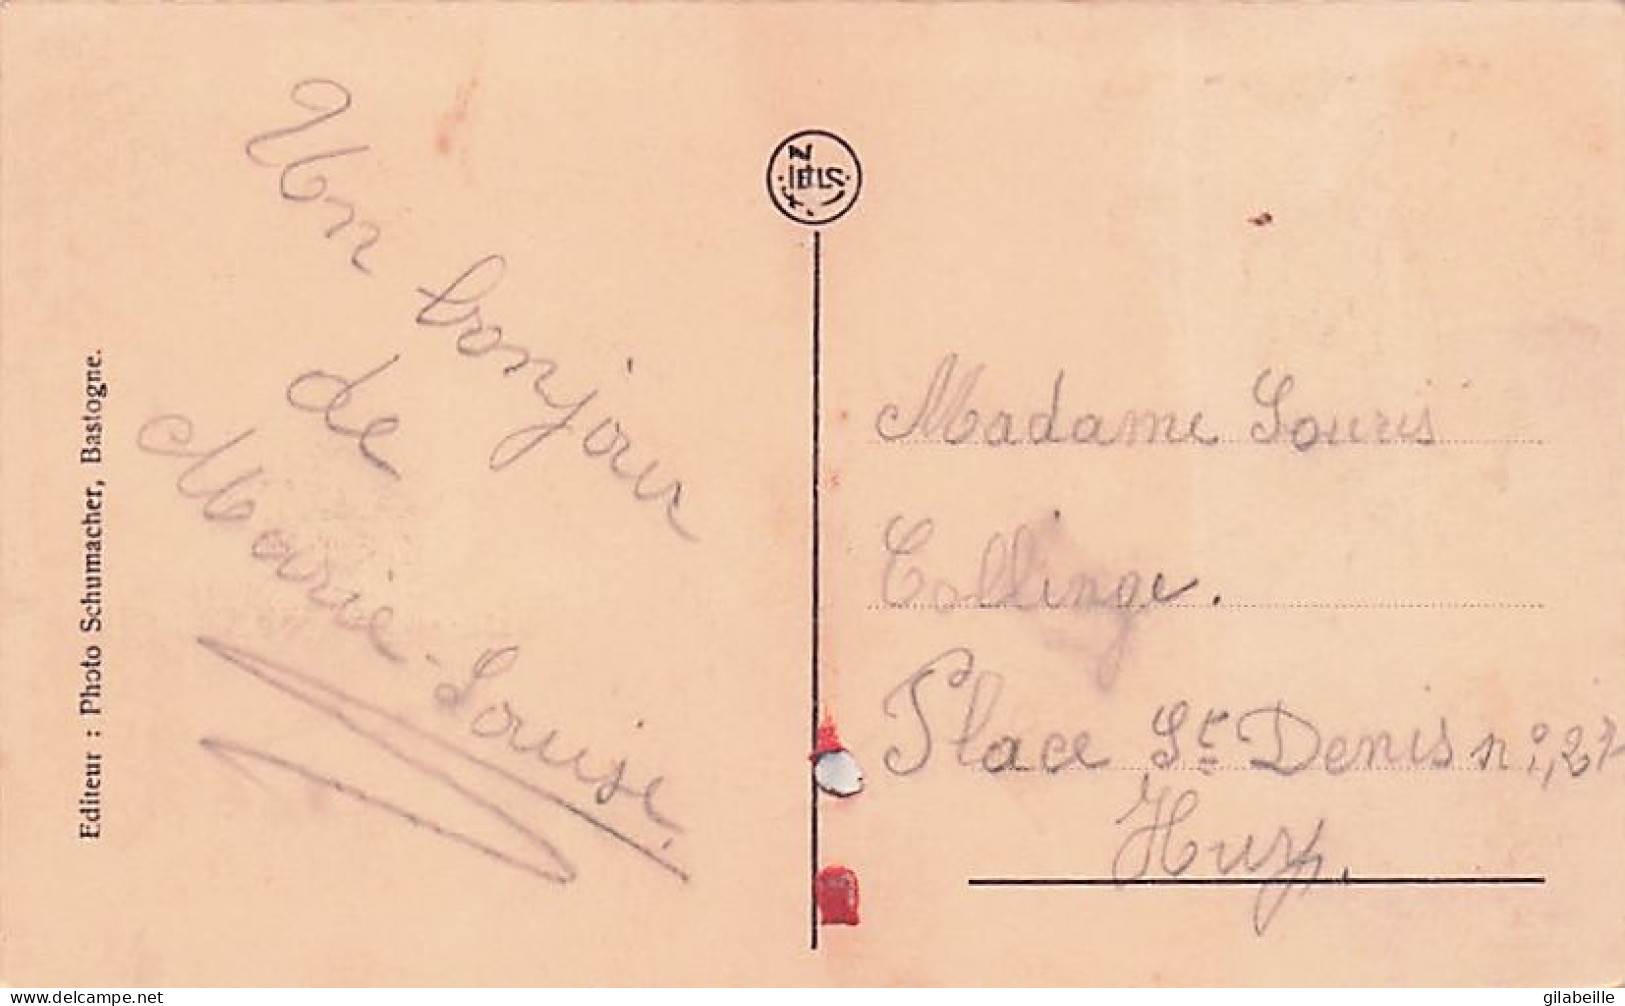 Un bonjour
de
Marie-Louise.
Editeur : Photo Schumacher, Bastogne.
NELS
Madame Souris
Collinge.
Place St Denis n°, 27
Huy.
gilabeille